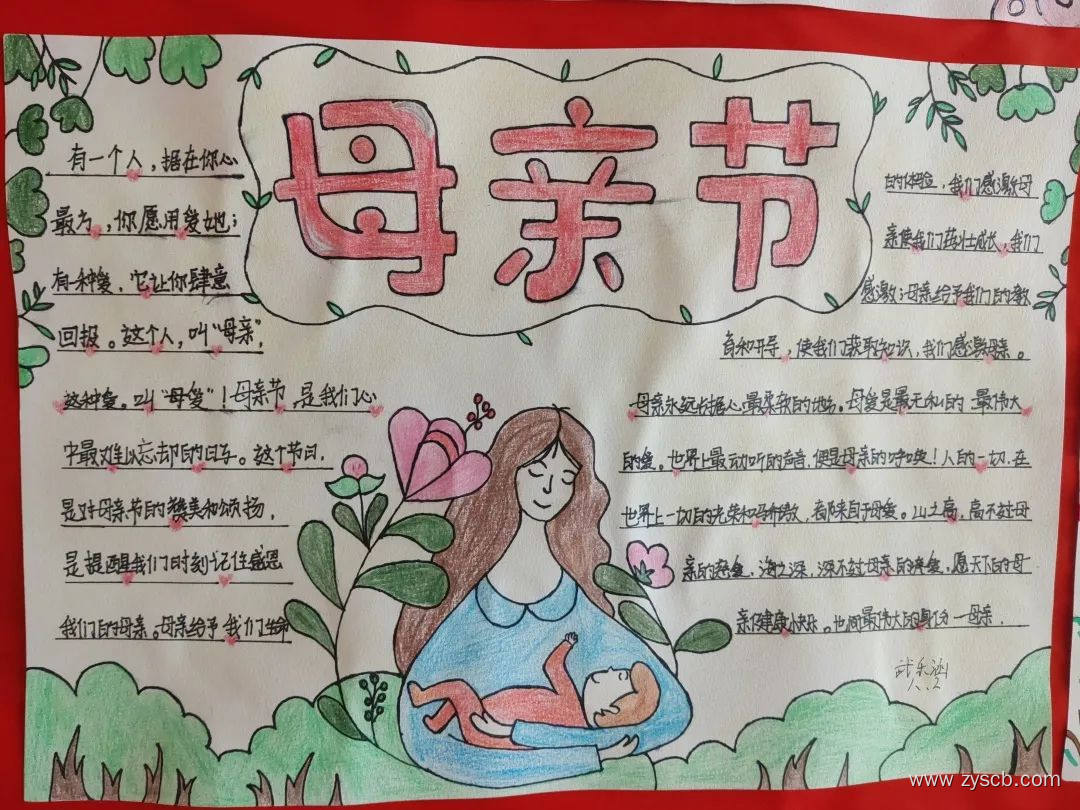 母亲节
有一个人，据在你心
最为，你愿用爱她；
有一种爱，它让你肆意
回报。这个人，叫“母亲”，
这种爱。叫“母爱”！母亲节，是我们心
中最难以忘却的日子。这个节日，
是对母亲节的赞美和颂扬，
是提醒我们时刻记住感恩
我们的母亲。母亲给予我们生命
的体验，我们感激母
亲使我们茁壮成长，我们
感激；母亲给予我们的教
育和开导，使我们获取知识，我们感激母亲。
母亲永远占据心最柔软的地，母爱是最无私的 最伟大
的爱。世界上最动听的声音，便是母亲的呼唤！人的一切，在
世界上一切的光荣和骄傲，都来自于母爱。山之高，高不过母
亲的疼爱，海之深，深不过母亲的疼爱，愿天下的母
亲健康快乐。世间最伟大的身份一母亲．
www.zyscb.com